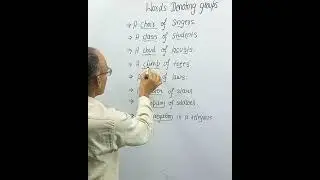 Words Denoting groups
→ A choir of singers.
→ A class of students
→ A cloud of locusts.
→ A climb of trees
→ A of laws.
of
of soldiers.
in a religious